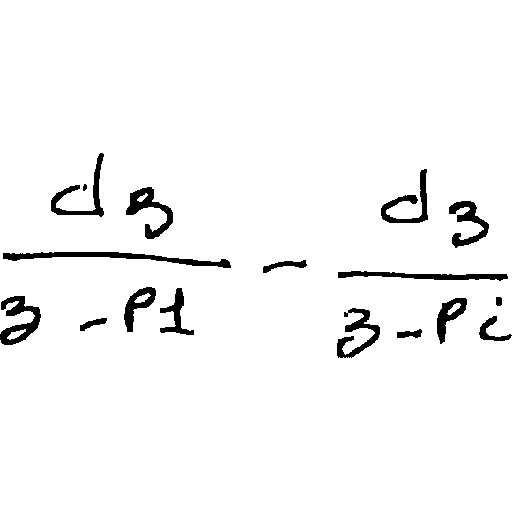 \frac{dz}{z - P1} - \frac{dz}{z - Pi}